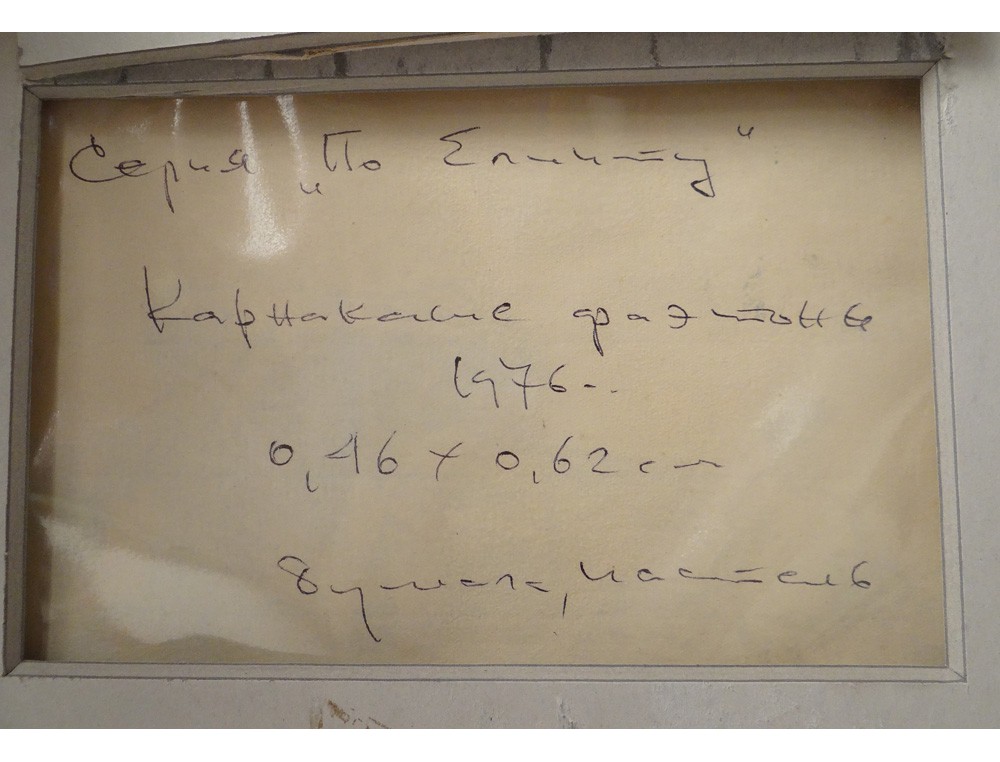 Серия „По Египту"
Карнакские фаэтоны
1976..
0,46 x 0,62 см
Бумага, пастель